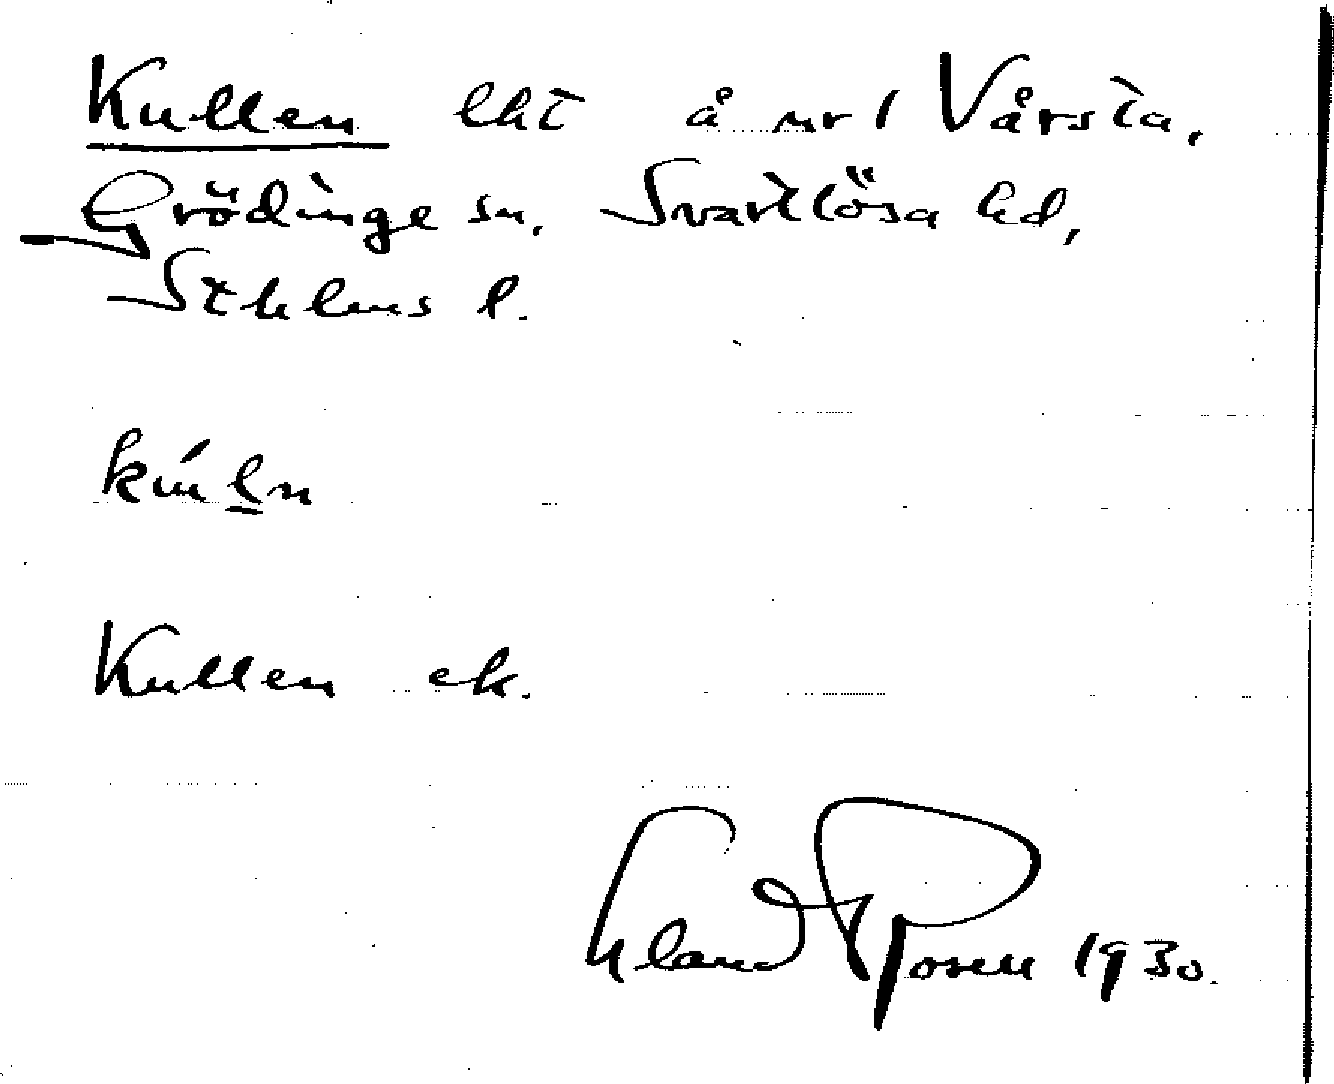 Kullen lht å nr 1 Vårsta,
Grödinge sn, Svartlösa hd,
Sthlms l.
Kullen ek.
Rosell 1930.